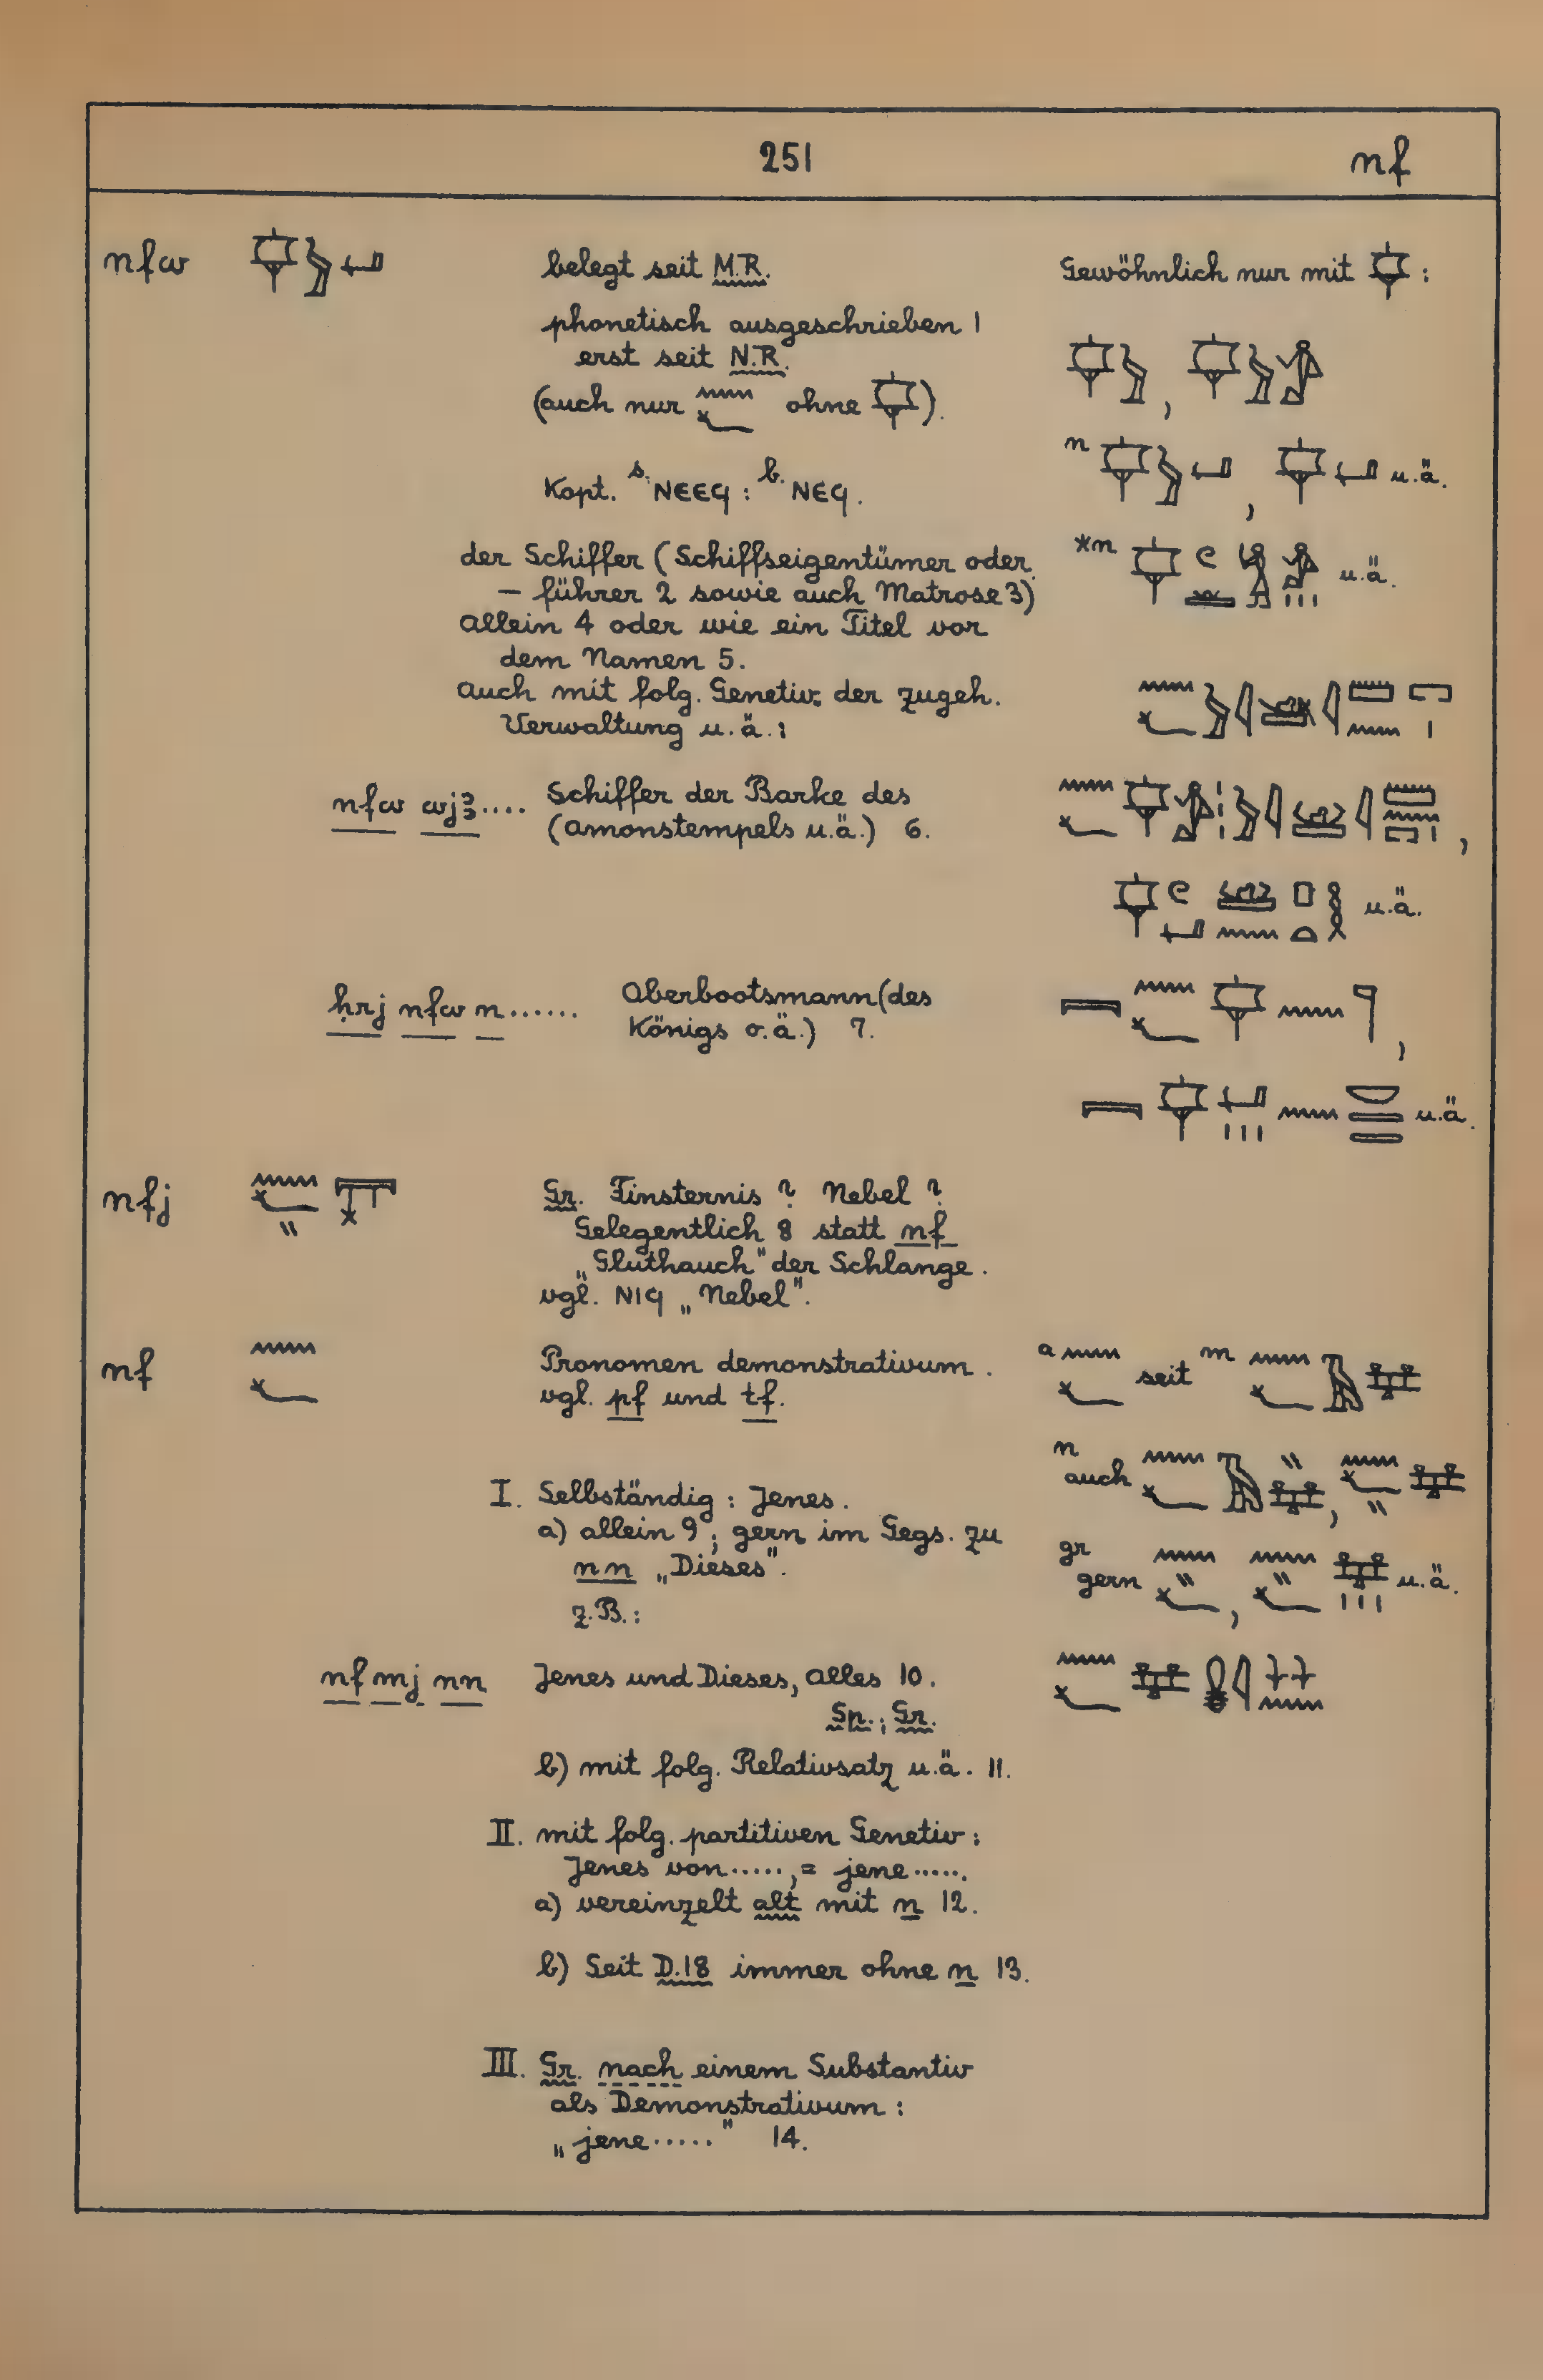 251 nf
nfw
belegt seit M.R.
Gewöhnlich nur mit 𓊡 :
phonetisch ausgeschrieben 1
erst seit N.R.
(auch nur 𓈖𓆑 ohne 𓊡).
Kopt. s. ⲛⲉⲉϥ : b. ⲛⲉϥ.
n
u.ä.
der Schiffer (Schiffseigentümer oder
– führer 2 sowie auch Matrose 3)
*n
u.ä.
allein 4 oder wie ein Titel vor
dem Namen 5.
auch mit folg. Genetiv: der zugeh.
Verwaltung u.ä.:
nfw wjꜣ.... Schiffer der Barke des
(Amonstempels u.ä.) 6.
u.ä.
ḥrj nfw n...... Oberbootsmann (des
Königs o.ä.) 7.
u.ä.
nfj
Gr. Finsternis ? Nebel ?
Gelegentlich 8 statt nf
„Gluthauch" der Schlange.
vgl. ⲛⲓϥ „Nebel".
nf 𓈖𓆑
Pronomen demonstrativum.
vgl. pf und tf.
a 𓈖𓆑 seit m
n
auch
I. Selbständig : Jenes.
a) allein 9 ; gern im Gegs. zu
nn „Dieses".
z.B.:
gr
gern
u.ä.
nf mj nn Jenes und Dieses, alles 10.
Sp.; Gr.
b) mit folg. Relativsatz u.ä. 11.
II. mit folg. partitiven Genetiv:
Jenes von....., = jene.....
a) vereinzelt alt mit n 12.
b) Seit D.18 immer ohne n 13.
III. Gr. nach einem Substantiv
als Demonstrativum :
„jene....." 14.